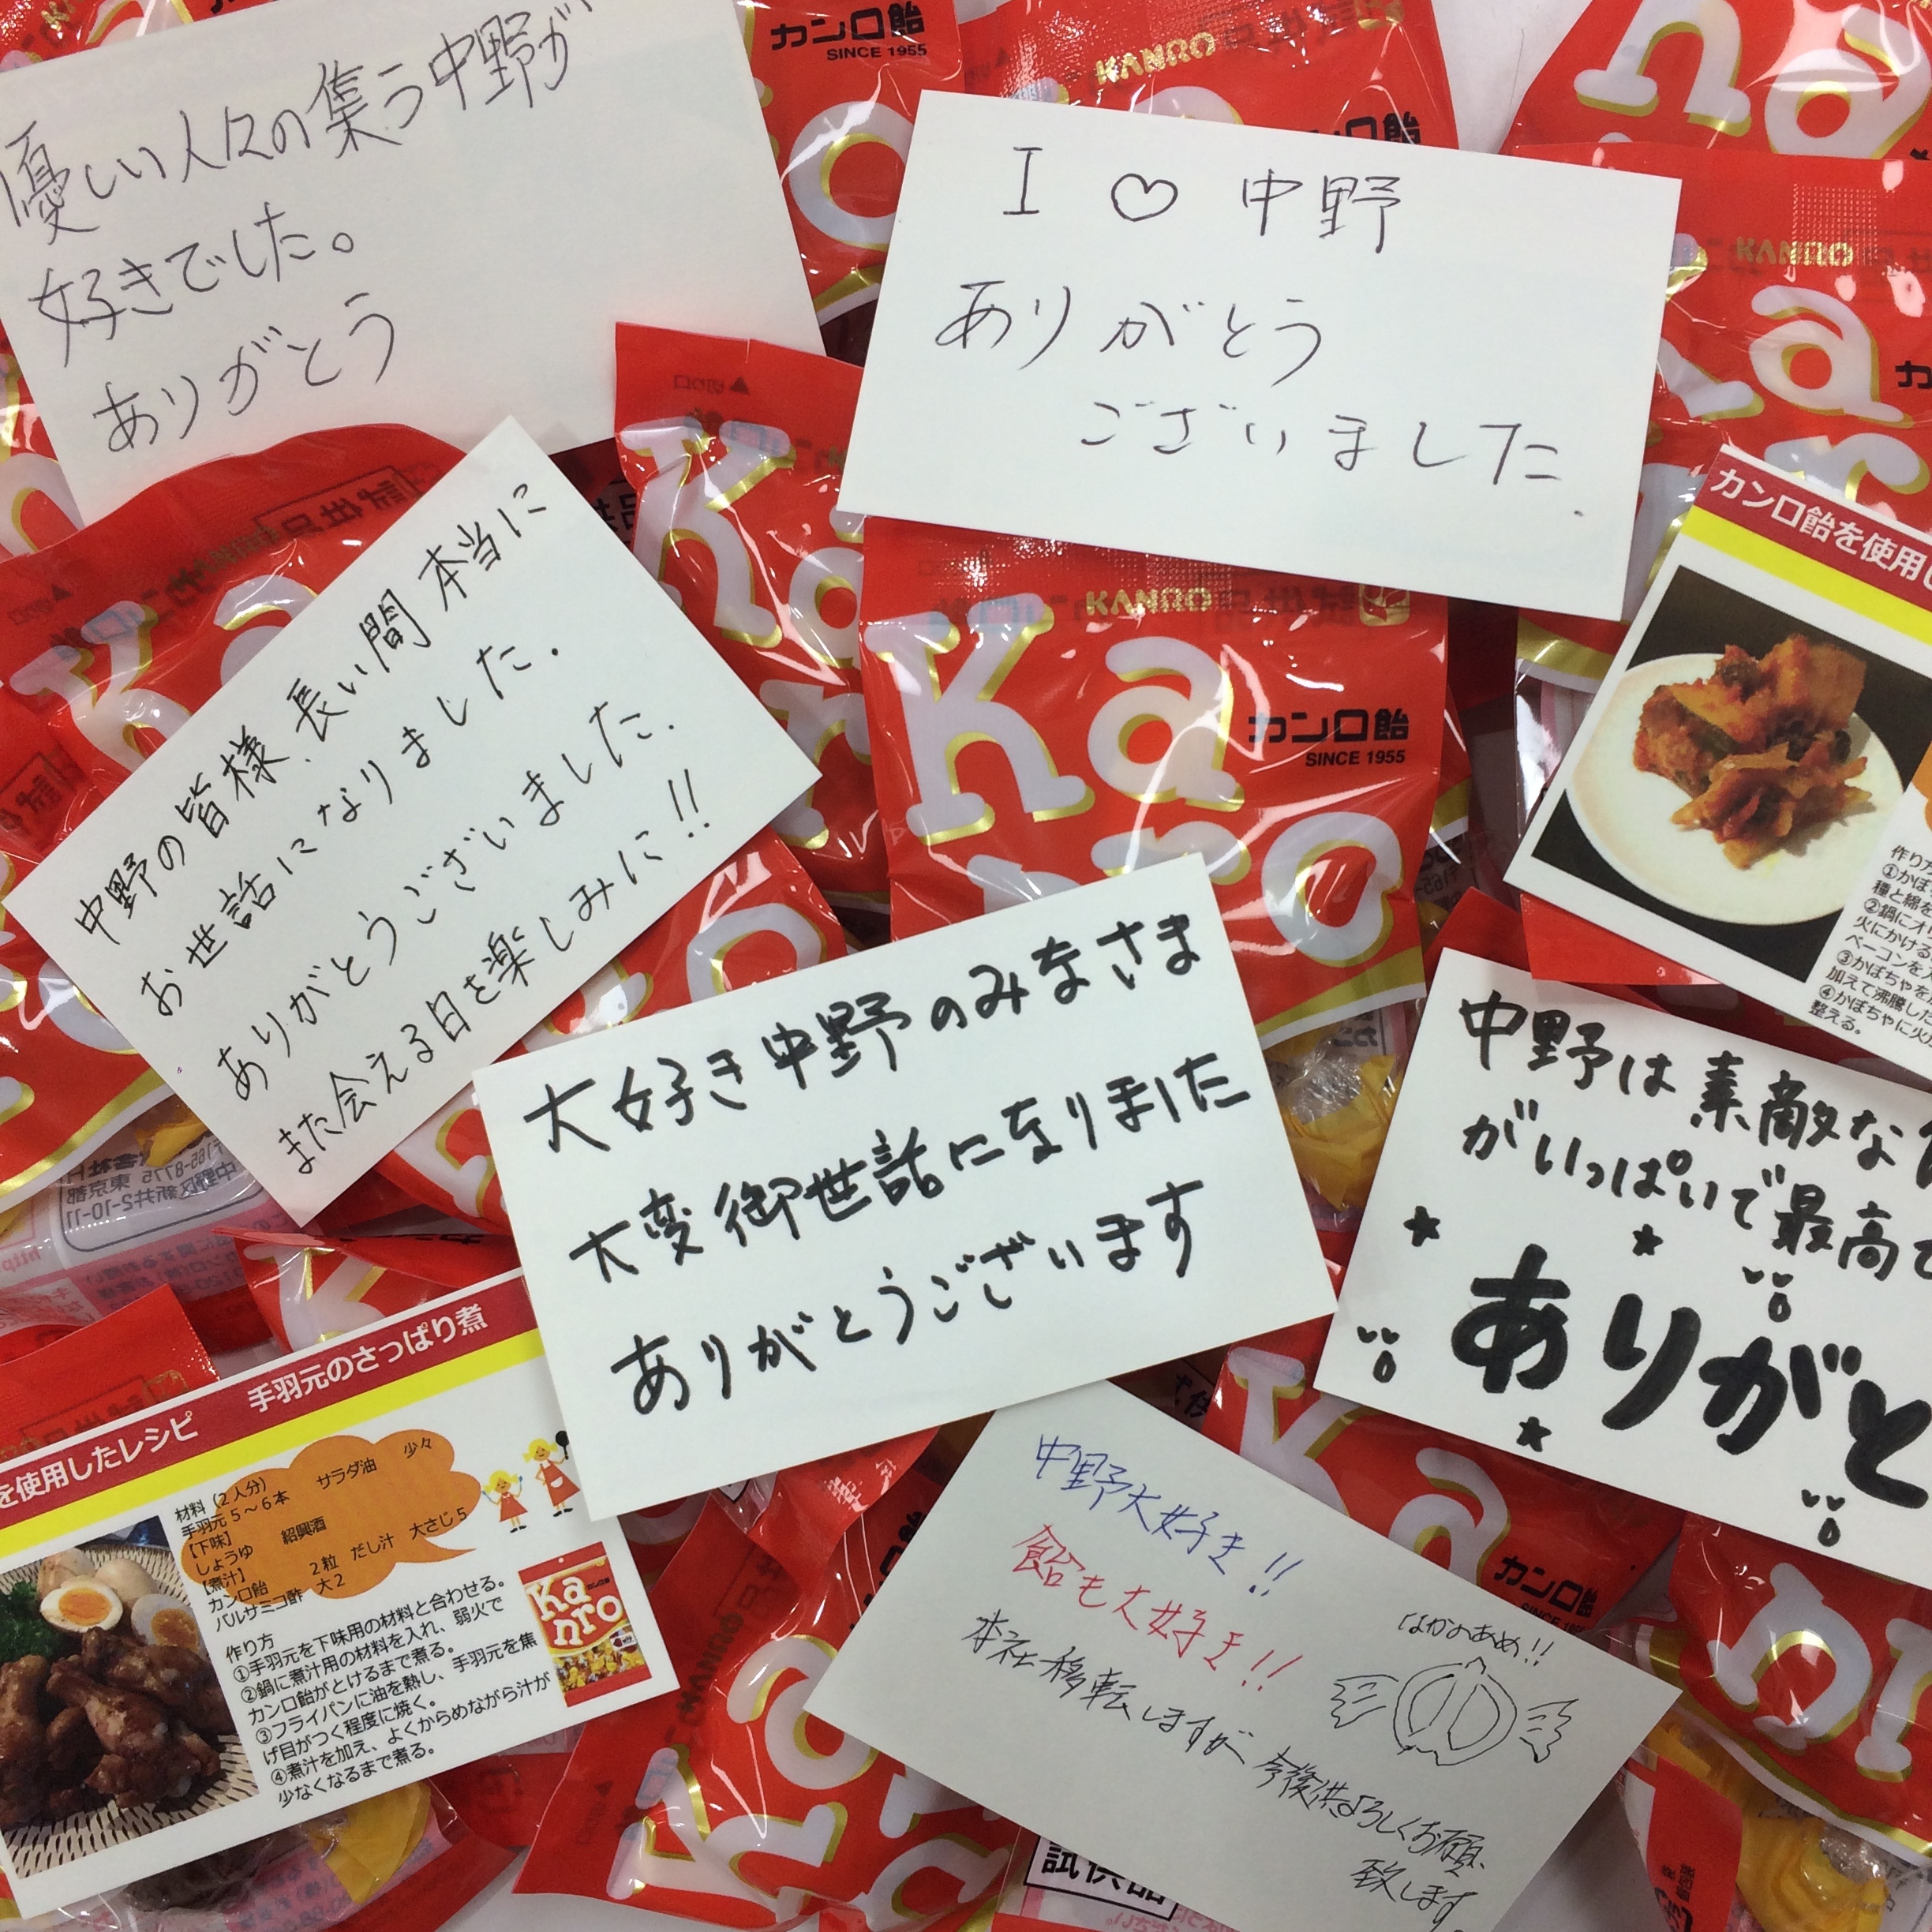 優しい人々の集う中野が
好きでした。
ありがとう
I ♡ 中野
ありがとう
ございました.
中野の皆様、長い間 本当に
お世話になりました.
ありがとうございました.
また会える日を楽しみに!!
大好き中野のみなさま
大変御世話になりました
ありがとうございます
中野は素敵な
がいっぱいで最高で
ありがと
中野大好き!!
飴も大好き!!
本社移転しますが、今後供よろしくお願い
致します。
なかのあめ!!
中
カンロ飴を使用し
作り方
①かぼ
種と綿を
②鍋にオリ
火にかける
ベーコンを入
③かぼちゃを
加えて沸騰した
④かぼちゃに火が
整える。
を使用したレシピ 手羽元のさっぱり煮
材料(2人分)
手羽元5~6本 サラダ油 少々
【下味】
しょうゆ 紹興酒
【煮汁】
カンロ飴 2粒 だし汁 大さじ5
バルサミコ酢 大2
作り方
①手羽元を下味用の材料と合わせる。
②鍋に煮汁用の材料を入れ、弱火で
カンロ飴がとけるまで煮る。
③フライパンに油を熱し、手羽元を焦
げ目がつく程度に焼く。
④煮汁を加え、よくからめながら汁が
少なくなるまで煮る。
Ka
nro
カンロ飴
SINCE 1955
KANRO
KANRO
カンロ飴
SINCE 1955
Ka
nro
カンロ飴
試供品